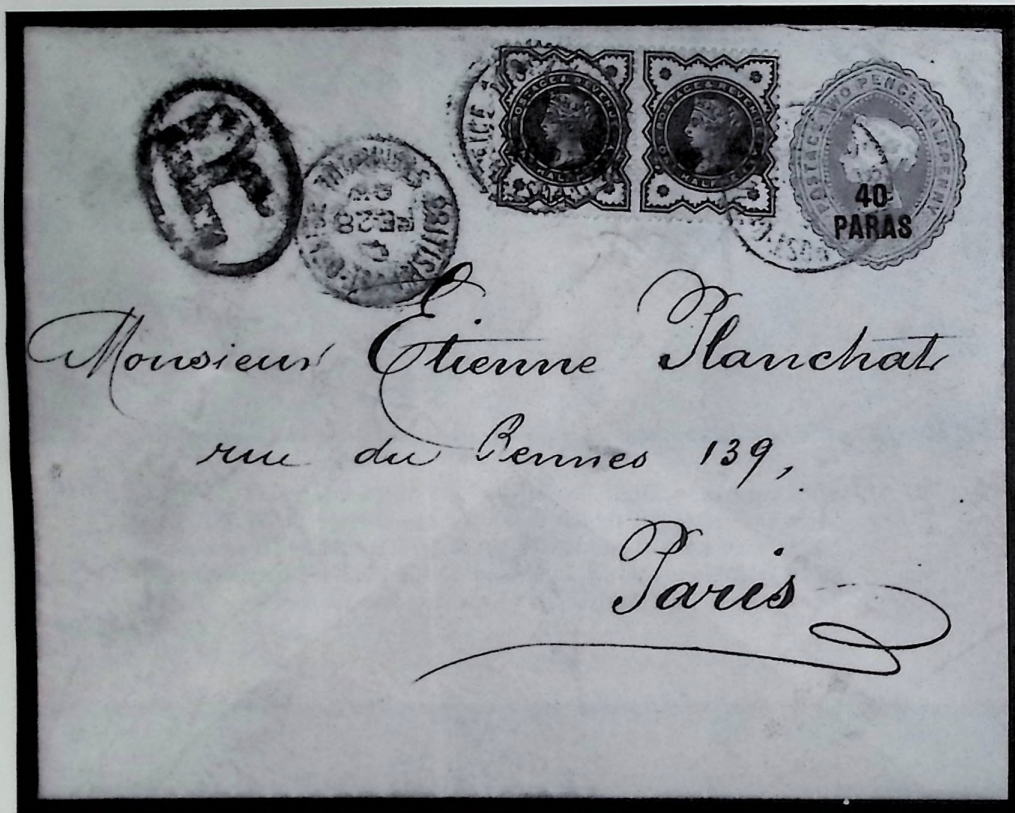 R
BRITISH POST OFFICE
FE 28
POSTAGE & REVENUE
HALF
POSTAGE & REVENUE
HALF
POSTAGE TWO PENCE HALFPENNY
40
PARAS
Monsieur Etienne Planchat
rue du Rennes 139,
Paris